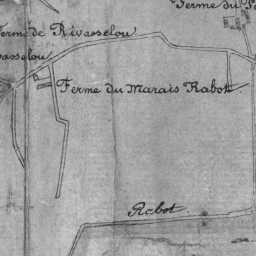 Ferme du
Ferme de Rivasselou
Ferme du Marais Rabot
Rabot